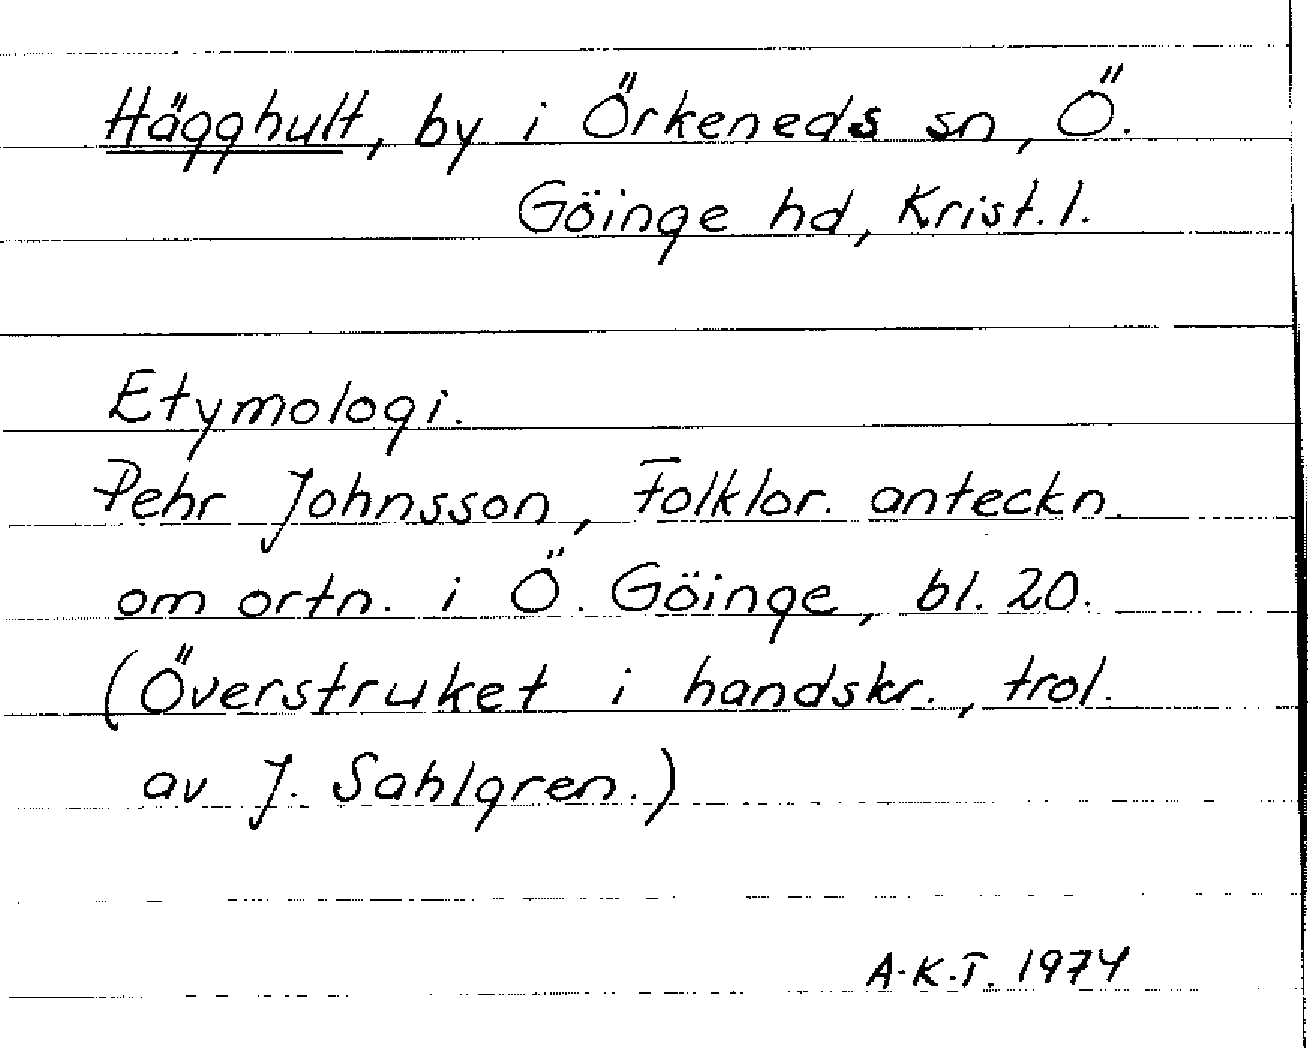 Hägghult, by i Örkeneds sn, Ö.
Göinge hd, Krist. l.
Etymologi.
Pehr Johnsson, Folklor. anteckn.
om ortn. i Ö. Göinge, bl. 20.
(Överstruket i handskr., trol.
av J. Sahlgren.)
A-K.T. 1974